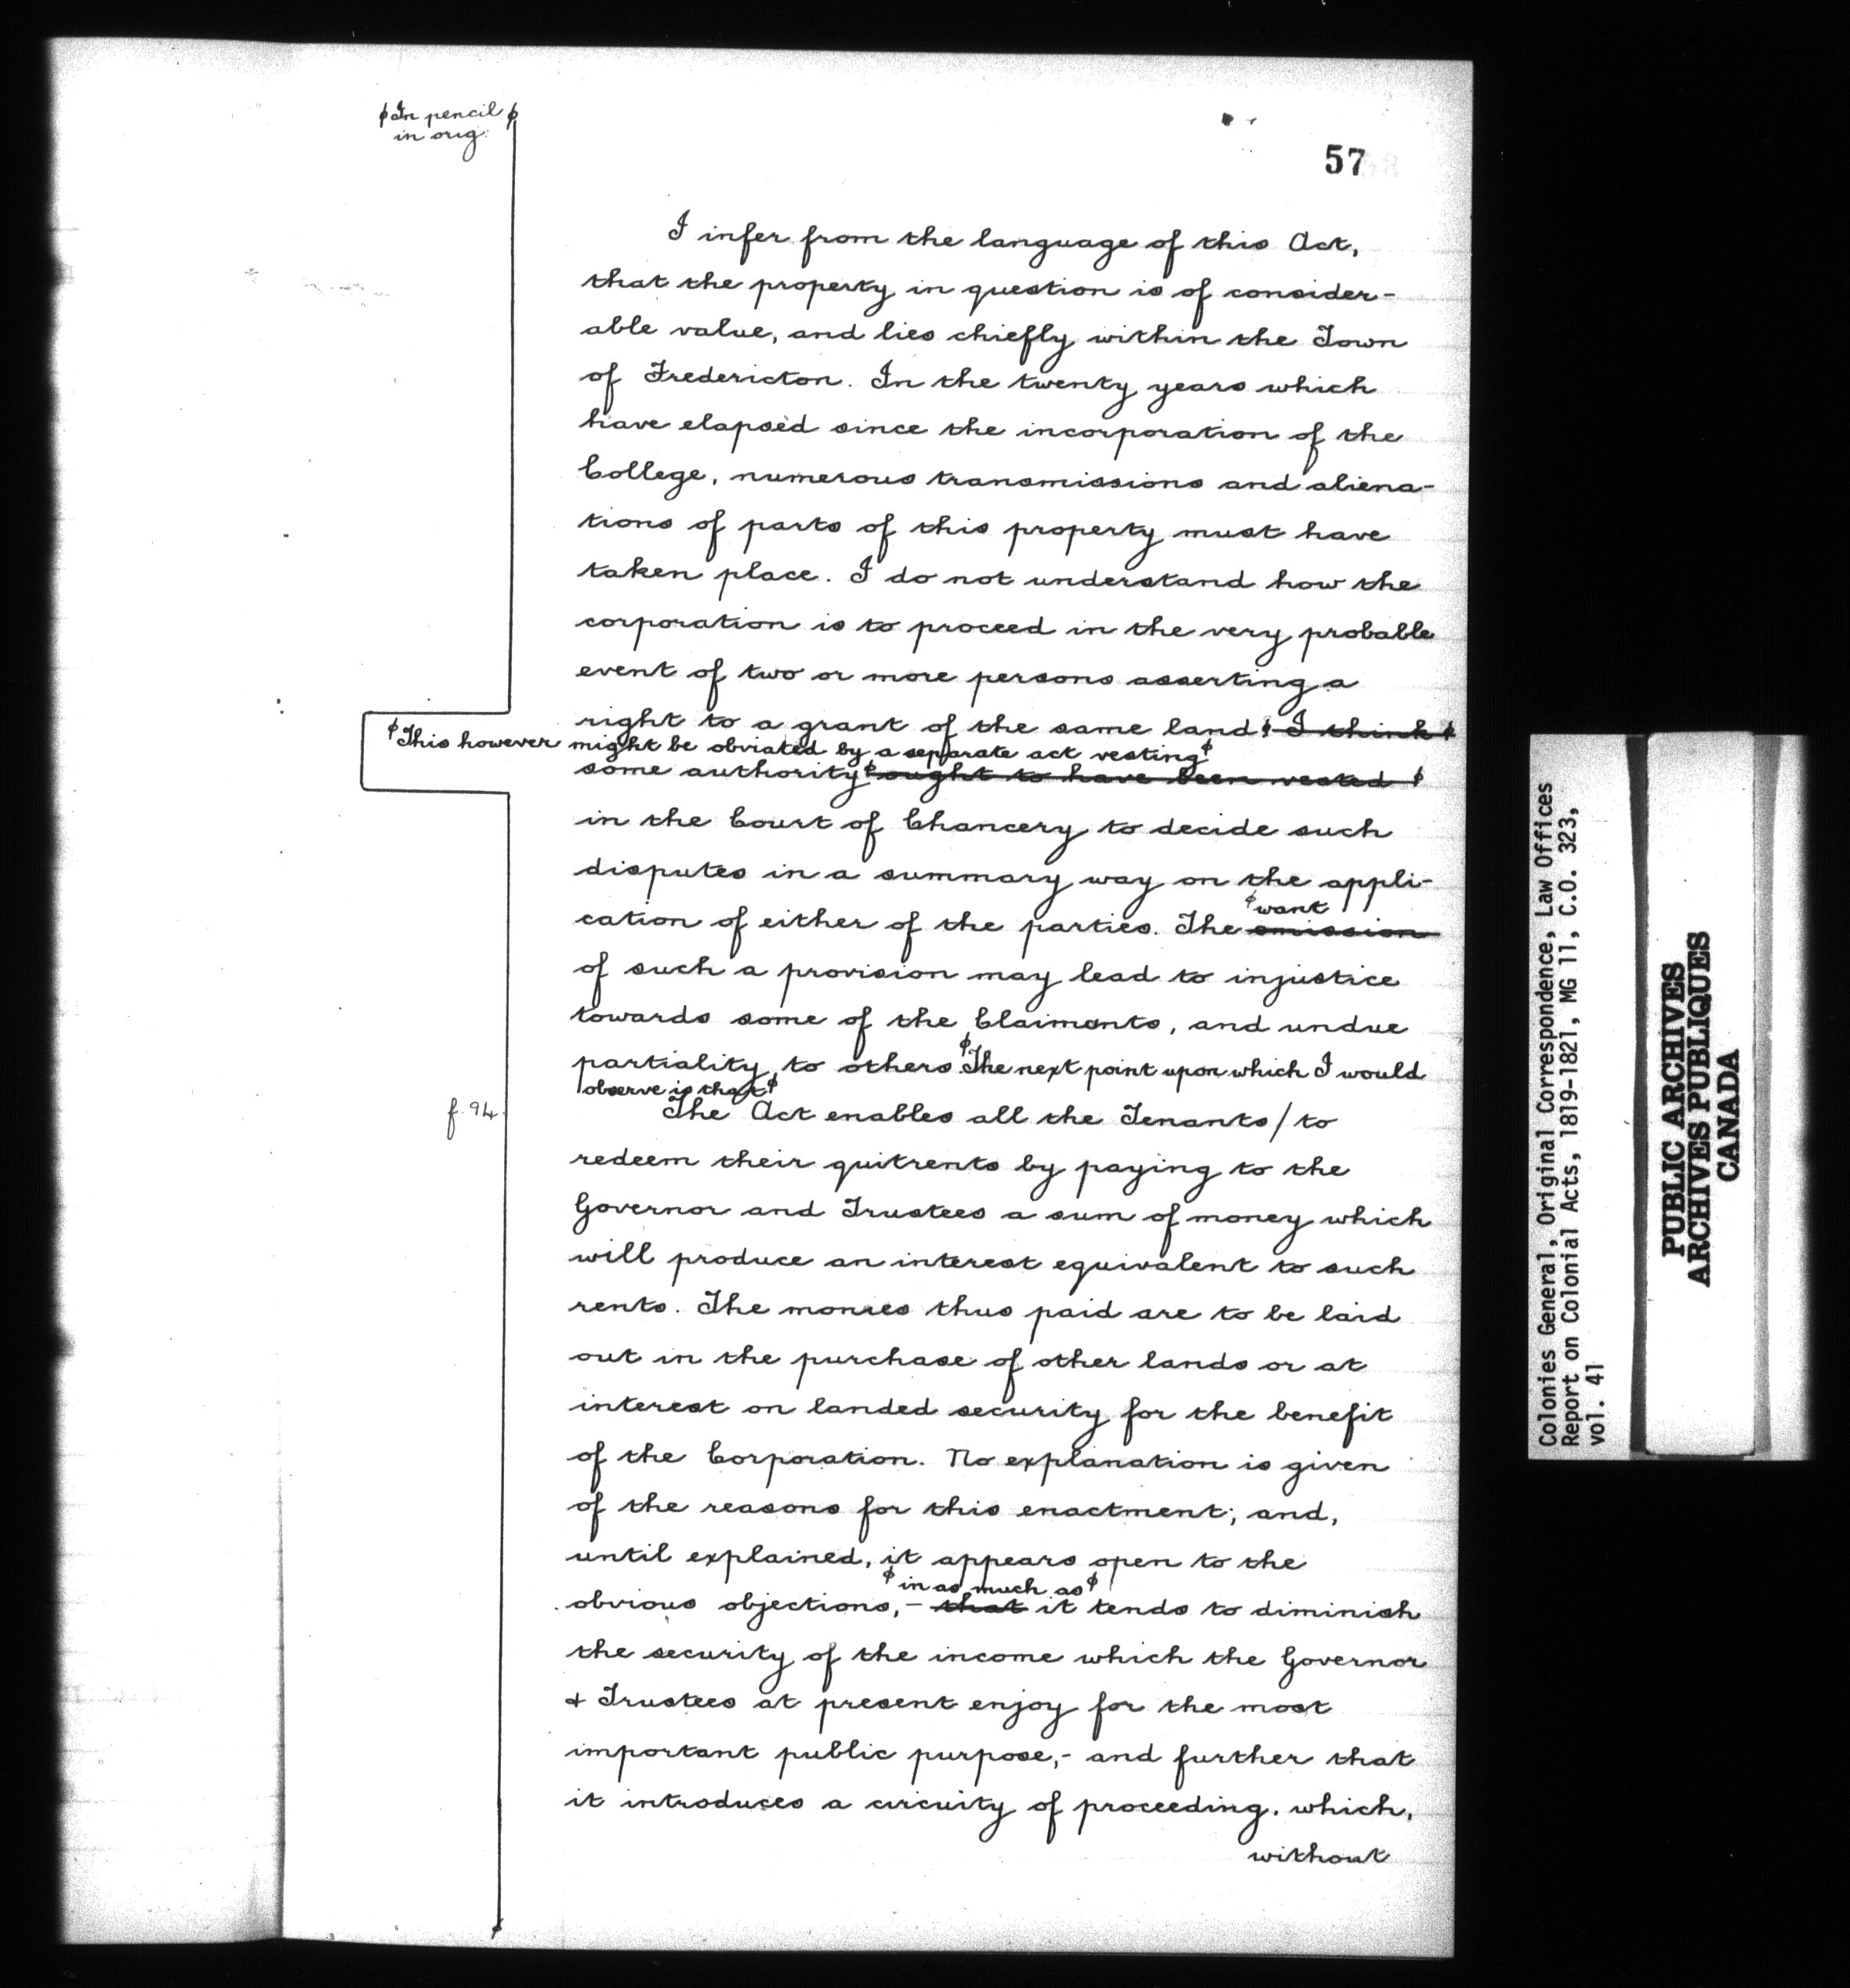 ϕ In pencil ϕ
in orig.
57
I infer from the language of this Act,
that the property in question is of consider-
able value, and lies chiefly within the Town
of Fredericton. In the twenty years which
have elapsed since the incorporation of the
College, numerous transmissions and aliena-
tions of parts of this property must have
taken place. I do not understand how the
corporation is to proceed in the very probable
event of two or more persons asserting a
right to a grant of the same land ϕ I think ϕ
ϕ This however might be obviated by a separate act vesting ϕ
some authority ϕ ought to have been vested ϕ
in the Court of Chancery to decide such
disputes in a summary way on the appli-
ϕ want
cation of either of the parties. The omission
of such a provision may lead to injustice
towards some of the Claimants, and undue
partiality to others. ϕ The next point upon which I would
observe is that ϕ
f. 94.
The Act enables all the Tenants / to
redeem their quitrents by paying to the
Governor and Trustees a sum of money which
will produce an interest equivalent to such
rents. The monies thus paid are to be laid
out in the purchase of other lands or at
interest on landed security for the benefit
of the Corporation. No explanation is given
of the reasons for this enactment; and,
until explained, it appears open to the
ϕ in as much as ϕ
obvious objections,- that it tends to diminish
the security of the income which the Governor
+ Trustees at present enjoy for the most
important public purpose,- and further that
it introduces a circuity of proceeding. which,
without
Colonies General, Original Correspondence, Law Offices
Report on Colonial Acts, 1819-1821, MG 11, C.O. 323,
vol. 41
PUBLIC ARCHIVES
ARCHIVES PUBLIQUES
CANADA